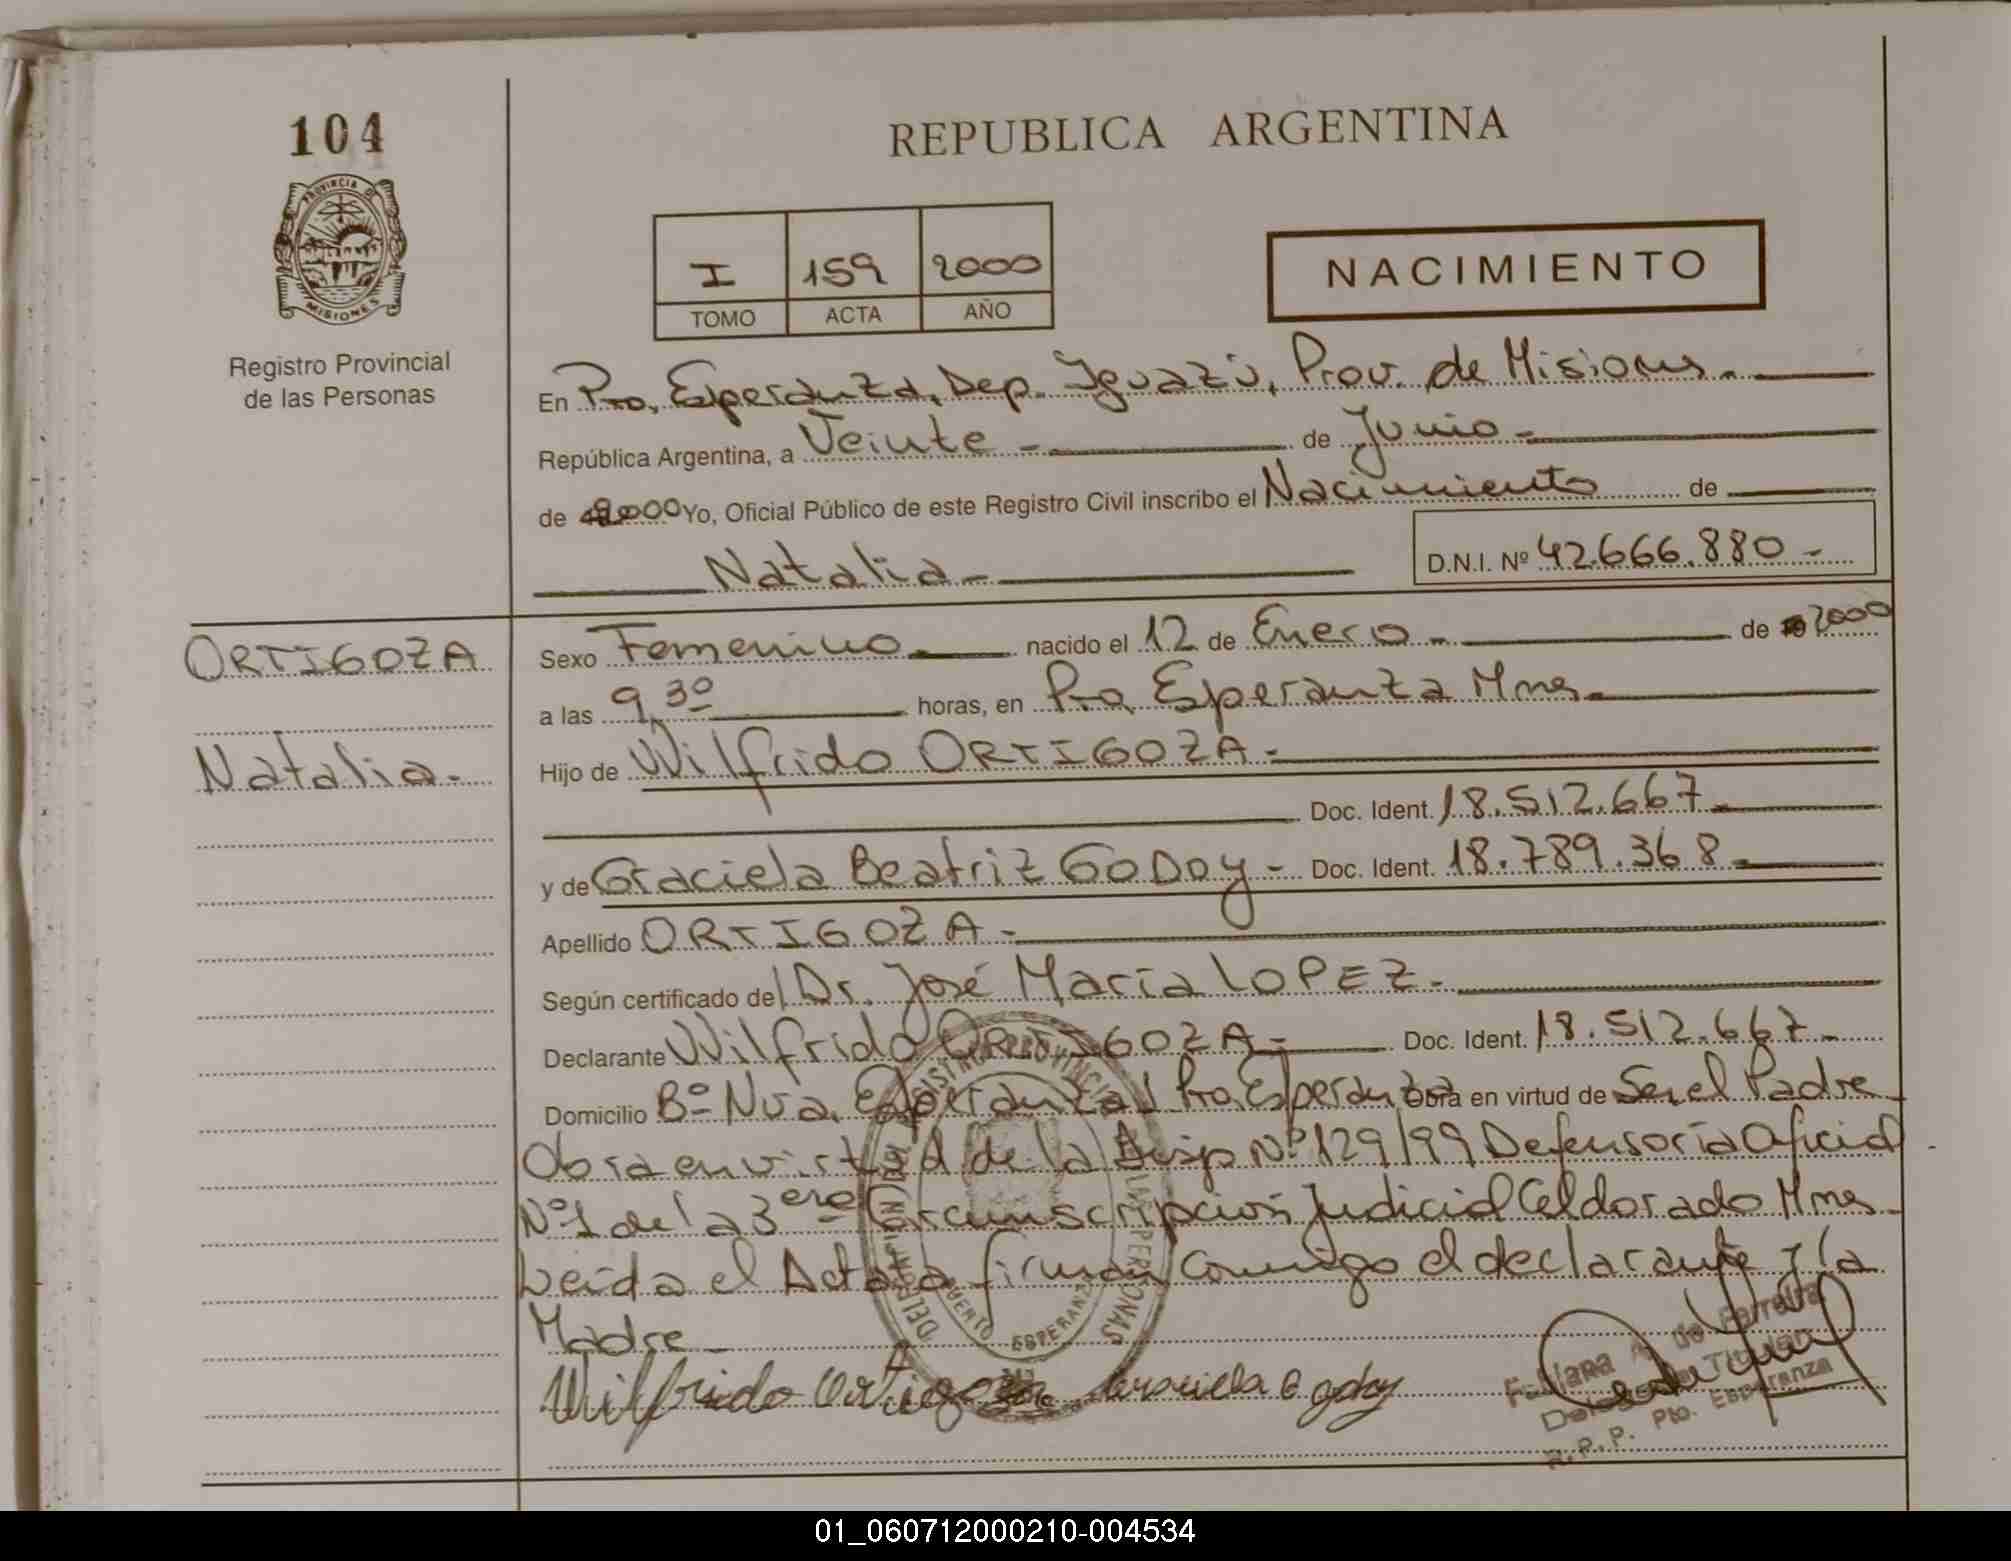 104
REPUBLICA ARGENTINA
PROVINCIA DE
MISIONES
Registro Provincial
de las Personas
I 159 2000
TOMO ACTA AÑO
NACIMIENTO
En Pto. Esperanza, Dep. Iguazú, Prov. de Misiones.
República Argentina, a Veinte - de Junio -
de 2000 Yo, Oficial Público de este Registro Civil inscribo el Nacimiento de
Natalia - D.N.I. Nº 42.666.880 -
ORTIGOZA
Sexo Femenino nacido el 12 de Enero - de 2000
a las 9,30 horas, en Pto. Esperanza Mnes.
Natalia.
Hijo de Wilfrido ORTIGOZA -
Doc. Ident. 18.512.667
y de Graciela Beatriz GODOY - Doc. Ident. 18.789.368
Apellido ORTIGOZA -
Según certificado del Dr. José María LOPEZ -
Declarante Wilfrido ORTIGOZA - Doc. Ident. 18.512.667 -
Domicilio Bº Nva. Esperanza Pto. Esperanza Obra en virtud de Ser el Padre
Obra en virtud de la Disp Nº 129/99 Defensoría Oficial
Nº 1 de la 3era Circunscripción Judicial Eldorado Mnes
Leída el Acta la firman conmigo el declarante y la
Madre -
Wilfrido Ortigoza Graciela Godoy
REGISTRO PROVINCIAL DE LAS PERSONAS
PUERTO ESPERANZA
de Ferreira
Titular
R.P.P. Pto. Esperanza
01_060712000210-004534